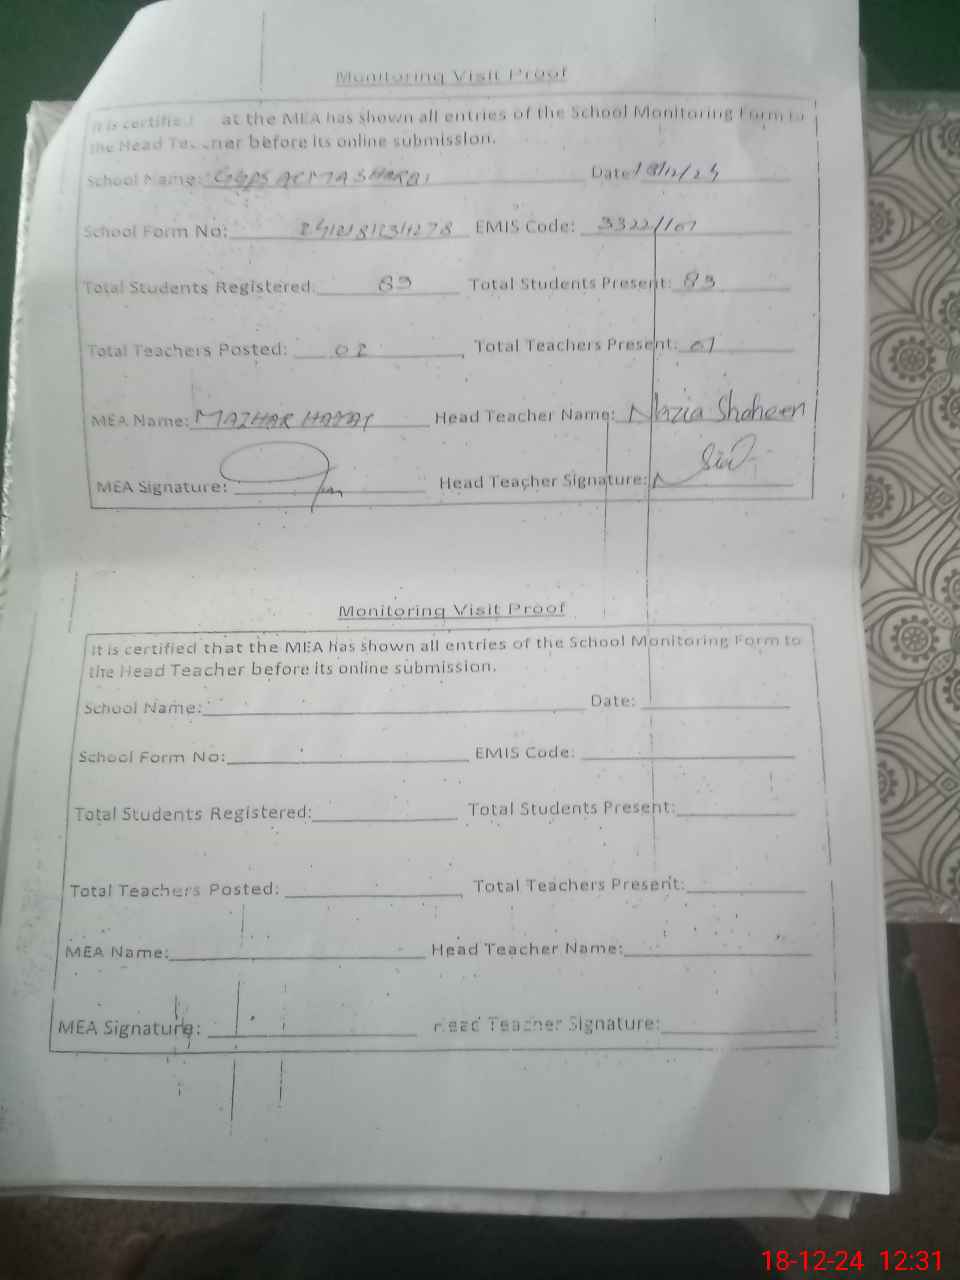 Monitoring Visit Proof
It is certified at the MEA has shown all entries of the School Monitoring Form to
the Head Teacher before its online submission.
School Name: GGPS Date 18/12/24
School Form No: EMIS Code:
Total Students Registered: 83 Total Students Present: 83
Total Teachers Posted: 02 Total Teachers Present: 01
MEA Name: MAZHAR HAYAT Head Teacher Name: Nazia Shaheen
MEA Signature: Head Teacher Signature:
Monitoring Visit Proof
It is certified that the MEA has shown all entries of the School Monitoring Form to
the Head Teacher before its online submission.
School Name: Date:
School Form No: EMIS Code:
Total Students Registered: Total Students Present:
Total Teachers Posted: Total Teachers Present:
MEA Name: Head Teacher Name:
MEA Signature: Head Teacher Signature:
18-12-24 12:31